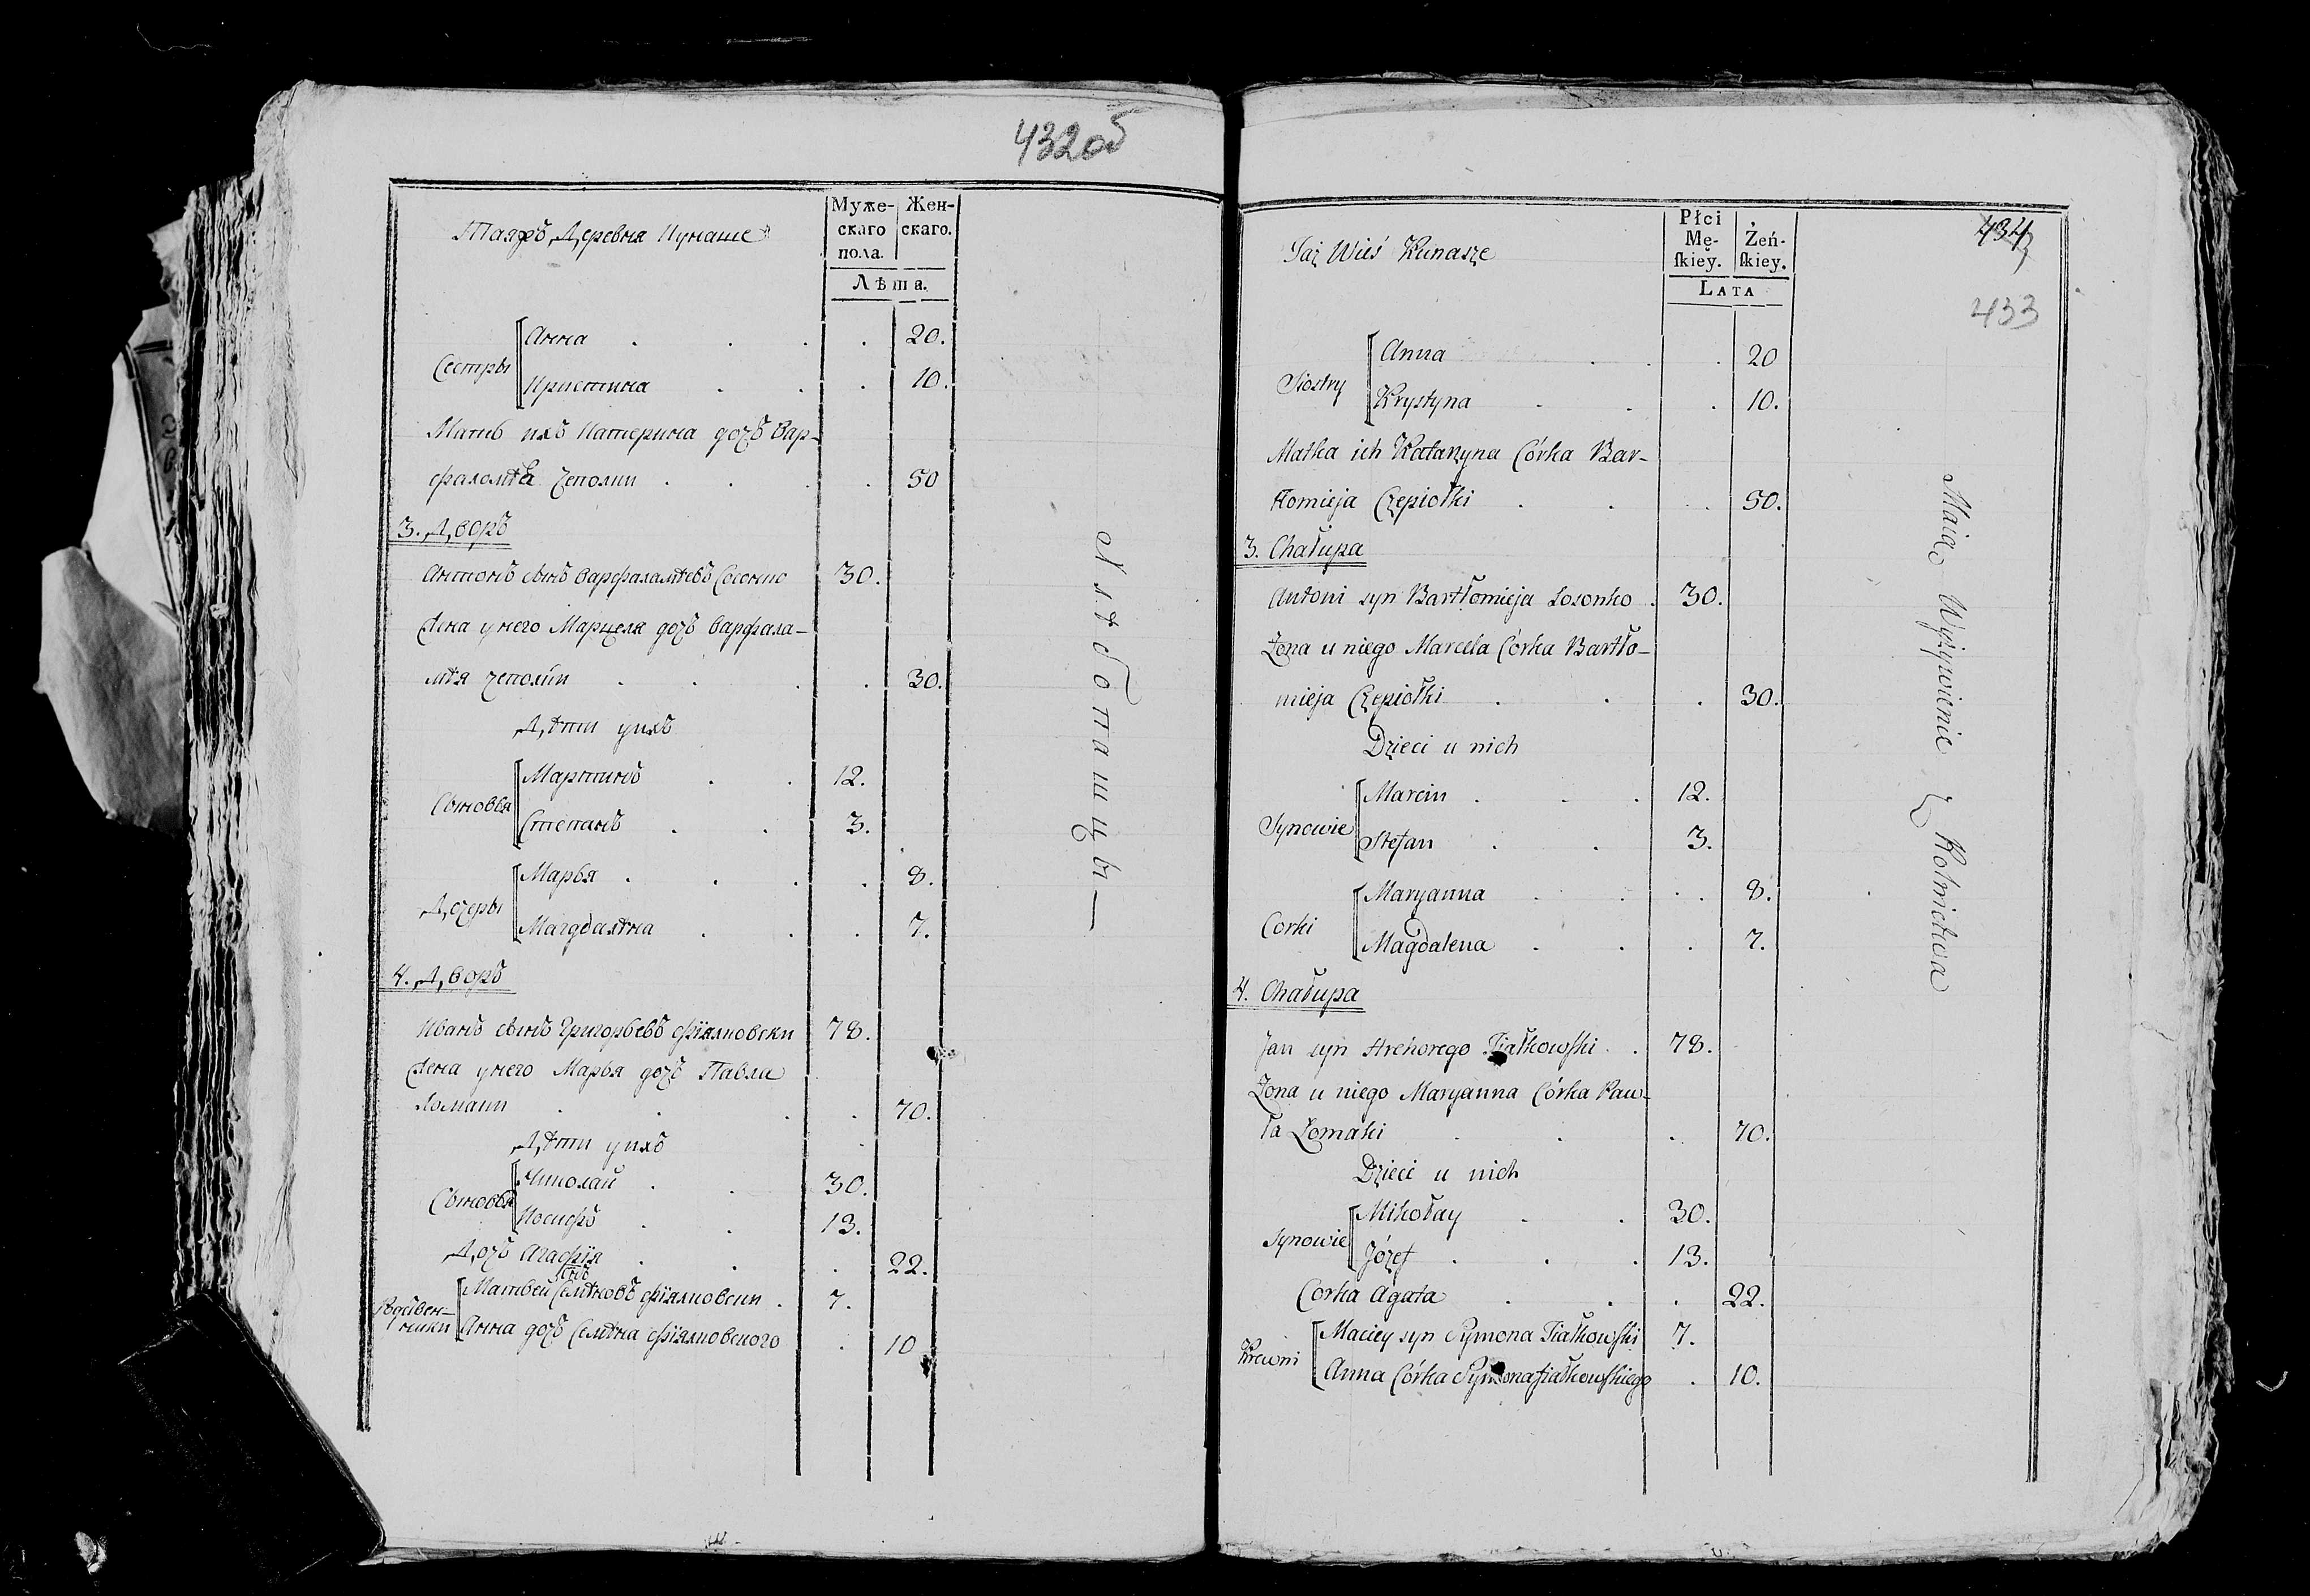 432об
Таяжъ Деревня Кунаше
Муже-
скаго
пола.
Жен-
скаго.
Лѣта.
Сестры
Анна . . . . 20.
Кристина . . . 10.
Мать ихъ Катерина дочъ Вар-
фаломѣя Чеполки . . . . 50
3. Дворъ
Антонъ сынъ Варфаламѣевъ Сосонко 30.
Жена унего Марцеля дочъ Варфала-
мѣя Чеполки . . . . 30.
Дѣти унхъ
Сыновья
Мартинъ . . 12.
Степанъ . . 3.
Дочеры
Марья . . . . 8.
Магдалѣна . . . 7.
4. Дворъ
Иванъ сынъ Григорьевъ Фіялковски 78.
Жена унего Марья дочъ Павла
Ломаки . . . . 70.
Дѣти унхъ
Сыновья
Николай . . 30.
Иосифъ . . 13.
Дочъ Агафія . . . 22.
Матвей сынъ Семѣновъ Фіялковски . 7.
Анна дочъ Семѣна Фіялковского . 10
Хлѣбопашцы —
Taż Wieś Kunasze
Płci
Mę-
ſkiey.
Żeń-
ſkiey.
LATA
434
433
Siostry
Anna . . 20
Krystyna . . . 10.
Matka ich Katarzyna Córka Bar-
tłomieja Czepiołki . . . . 50.
3. Chałupa
Antoni syn Bartłomieja Sosonko . 30.
Żona u niego Marcella Córka Bartło-
mieja Czepiołki . . . 30.
Dzieci u nich
Synowie
Marcin . . . 12.
Stefan . . 3.
Corki
Maryanna . . . . 8.
Magdalena . . . 7.
4. Chałupa
Jan syn Hrehorego Fiałkowſki . . 78.
Żona u niego Maryanna Córka Paw-
ła Łomaki . . . 70.
Dzieci u nich
Synowie
Mikołay . . 30.
Józef . . . 13.
Corka Agata . . . 22.
Krewni
Maciey syn Symona Fiałkowſki 7.
Anna Córka Symona Fiałkowſkiego . 10.
Maią Wyżywienie z Rolnictwa